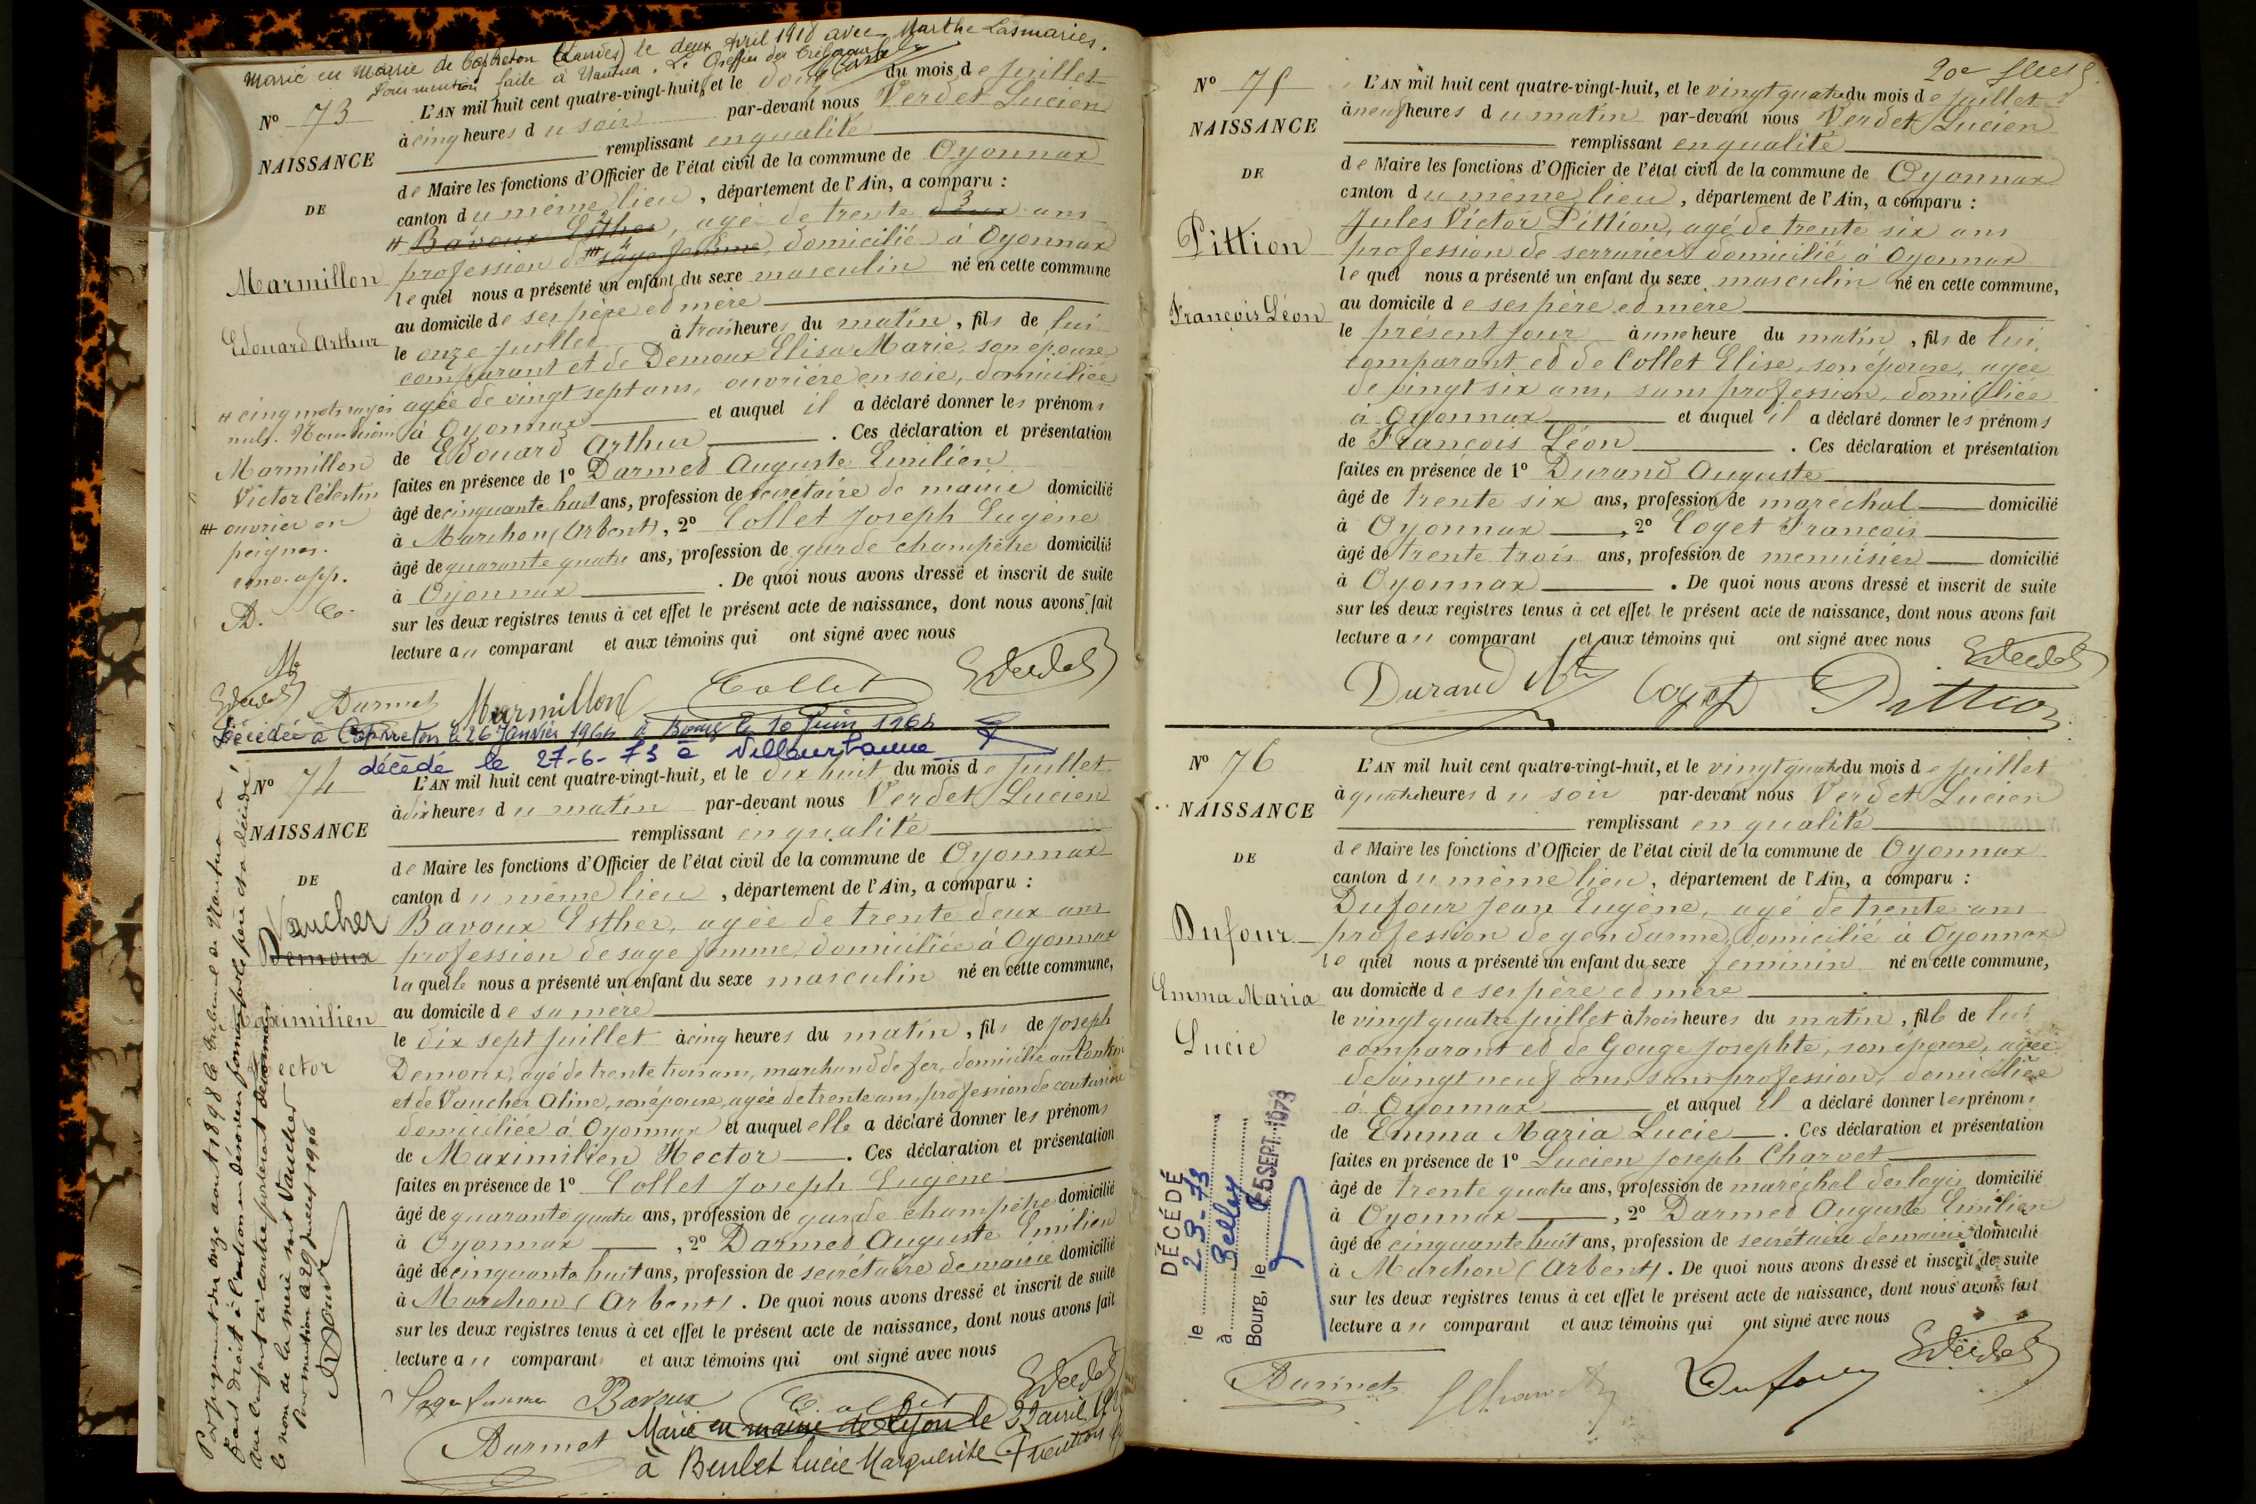 Marié en Mairie de Capbreton (Landes) le deux Avril 1918 avec Marthe Lasmaries.
Pour mention faite à Nantua. Le Greffier du Tribunal
No 73
NAISSANCE
DE
Marmillon
Edouard Arthur
L'AN mil huit cent quatre-vingt-huit, et le douze du mois de juillet
à cinq heures du soir par-devant nous Verdet Lucien
remplissant en qualité
de Maire les fonctions d'Officier de l'état civil de la commune de Oyonnax
canton du même lieu, département de l'Ain, a comparu :
# Bavoux Esther, agé de trente deux 3 ans
profession de # sage femme, domicilié à Oyonnax
lequel nous a présenté un enfant du sexe masculin né en cette commune
au domicile de ses père et mère
le onze juillet à trois heures du matin, fils de lui
comparant et de Demoux Elisa Marie, son épouse
agée de vingt sept ans, ouvrière en soie, domiciliée
à Oyonnax et auquel il a déclaré donner les prénoms
de Edouard Arthur. Ces déclaration et présentation
faites en présence de 1o Darmet Auguste Emilien
âgé de cinquante huit ans, profession de secrétaire de mairie domicilié
à Marchon (Arbent), 2o Collet Joseph Eugène
âgé de quarante quatre ans, profession de garde champêtre domicilié
à Oyonnax. De quoi nous avons dressé et inscrit de suite
sur les deux registres tenus à cet effet le présent acte de naissance, dont nous avons fait
lecture au comparant et aux témoins qui ont signé avec nous
# cinq mots rayés
nuls.
Marmillon
Victor Célestin
# ouvrier en
peignes.
app.
D. Co.
M
Verdet
Darmet Marmillon Collet Verdet
Décédée à Capbreton le 26 Janvier 1964 à Bourg le 10 Juin 1964
décédé le 27-6-73 à Villeurbanne
No 74
NAISSANCE
DE
Vaucher
Demoux
Maximilien
Hector
L'AN mil huit cent quatre-vingt-huit, et le dix huit du mois de juillet
à dix heures du matin par-devant nous Verdet Lucien
remplissant en qualité
de Maire les fonctions d'Officier de l'état civil de la commune de Oyonnax
canton du même lieu, département de l'Ain, a comparu :
Bavoux Esther, agée de trente deux ans
profession de sage femme, domiciliée à Oyonnax
laquelle nous a présenté un enfant du sexe masculin né en cette commune,
au domicile de sa mère
le dix sept juillet à cinq heures du matin, fils de Joseph
Demoux, agé de trente trois ans, marchand de fer, domicilié au Pantin
et de Vaucher Aline, son épouse, agée de trente ans, profession de couturière
domiciliée à Oyonnax et auquel elle a déclaré donner les prénoms
de Maximilien Hector. Ces déclaration et présentation
faites en présence de 1o Collet Joseph Eugène
âgé de quarante quatre ans, profession de garde champêtre domicilié
à Oyonnax, 2o Darmet Auguste Emilien
âgé de cinquante huit ans, profession de secrétaire de mairie domicilié
à Marchon (Arbent). De quoi nous avons dressé et inscrit de suite
sur les deux registres tenus à cet effet le présent acte de naissance, dont nous avons fait
lecture au comparant et aux témoins qui ont signé avec nous
Sage femme Bavoux Collet Verdet
Darmet
Marié en mairie de Lyon le 22 avril
à Berlet Lucie Marguerite
Par jugement du onze aout 1898 le Tribunal de Nantua a
fait droit à l'action en désaveu formée par le père et a décidé
que l'enfant ci-contre porterait désormais
le nom de la mère soit Vaucher
Pour mention le 29 juillet 1936
20e feuille
No 75
NAISSANCE
DE
Pittion
François Léon
L'AN mil huit cent quatre-vingt-huit, et le vingt quatre du mois de juillet
à neuf heures du matin par-devant nous Verdet Lucien
remplissant en qualité
de Maire les fonctions d'Officier de l'état civil de la commune de Oyonnax
canton du même lieu, département de l'Ain, a comparu :
Jules Victor Pittion, agé de trente six ans
profession de serrurier domicilié à Oyonnax
lequel nous a présenté un enfant du sexe masculin né en cette commune,
au domicile de ses père et mère
le présent jour à une heure du matin, fils de lui
comparant et de Collet Elise, son épouse, agée
de vingt six ans, sans profession, domiciliée
à Oyonnax et auquel il a déclaré donner les prénoms
de François Léon. Ces déclaration et présentation
faites en présence de 1o Durand Auguste
âgé de trente six ans, profession de maréchal domicilié
à Oyonnax, 2o Coyet François
âgé de trente trois ans, profession de menuisier domicilié
à Oyonnax. De quoi nous avons dressé et inscrit de suite
sur les deux registres tenus à cet effet le présent acte de naissance, dont nous avons fait
lecture au comparant et aux témoins qui ont signé avec nous
Verdet
Durand Coyet Pittion
No 76
NAISSANCE
DE
Dufour
Emma Maria
Lucie
L'AN mil huit cent quatre-vingt-huit, et le vingt quatre du mois de juillet
à quatre heures du soir par-devant nous Verdet Lucien
remplissant en qualité
de Maire les fonctions d'Officier de l'état civil de la commune de Oyonnax
canton du même lieu, département de l'Ain, a comparu :
Dufour Jean Eugène, agé de trente ans
profession de gendarme, domicilié à Oyonnax
lequel nous a présenté un enfant du sexe féminin né en cette commune,
au domicile de ses père et mère
le vingt quatre juillet à trois heures du matin, fille de lui
comparant et de Gouge Josephte, son épouse, agée
de vingt neuf ans, sans profession, domiciliée
à Oyonnax et auquel il a déclaré donner les prénoms
de Emma Maria Lucie. Ces déclaration et présentation
faites en présence de 1o Lucien Joseph Charvet
âgé de trente quatre ans, profession de maréchal des logis domicilié
à Oyonnax, 2o Darmet Auguste Emilien
âgé de cinquante huit ans, profession de secrétaire de mairie domicilié
à Marchon (Arbent). De quoi nous avons dressé et inscrit de suite
sur les deux registres tenus à cet effet le présent acte de naissance, dont nous avons fait
lecture au comparant et aux témoins qui ont signé avec nous
Verdet
Darmet Charvet Dufour
DÉCÉDÉ
le 2-9-73
à Belley
Bourg, le 5 SEPT. 1973